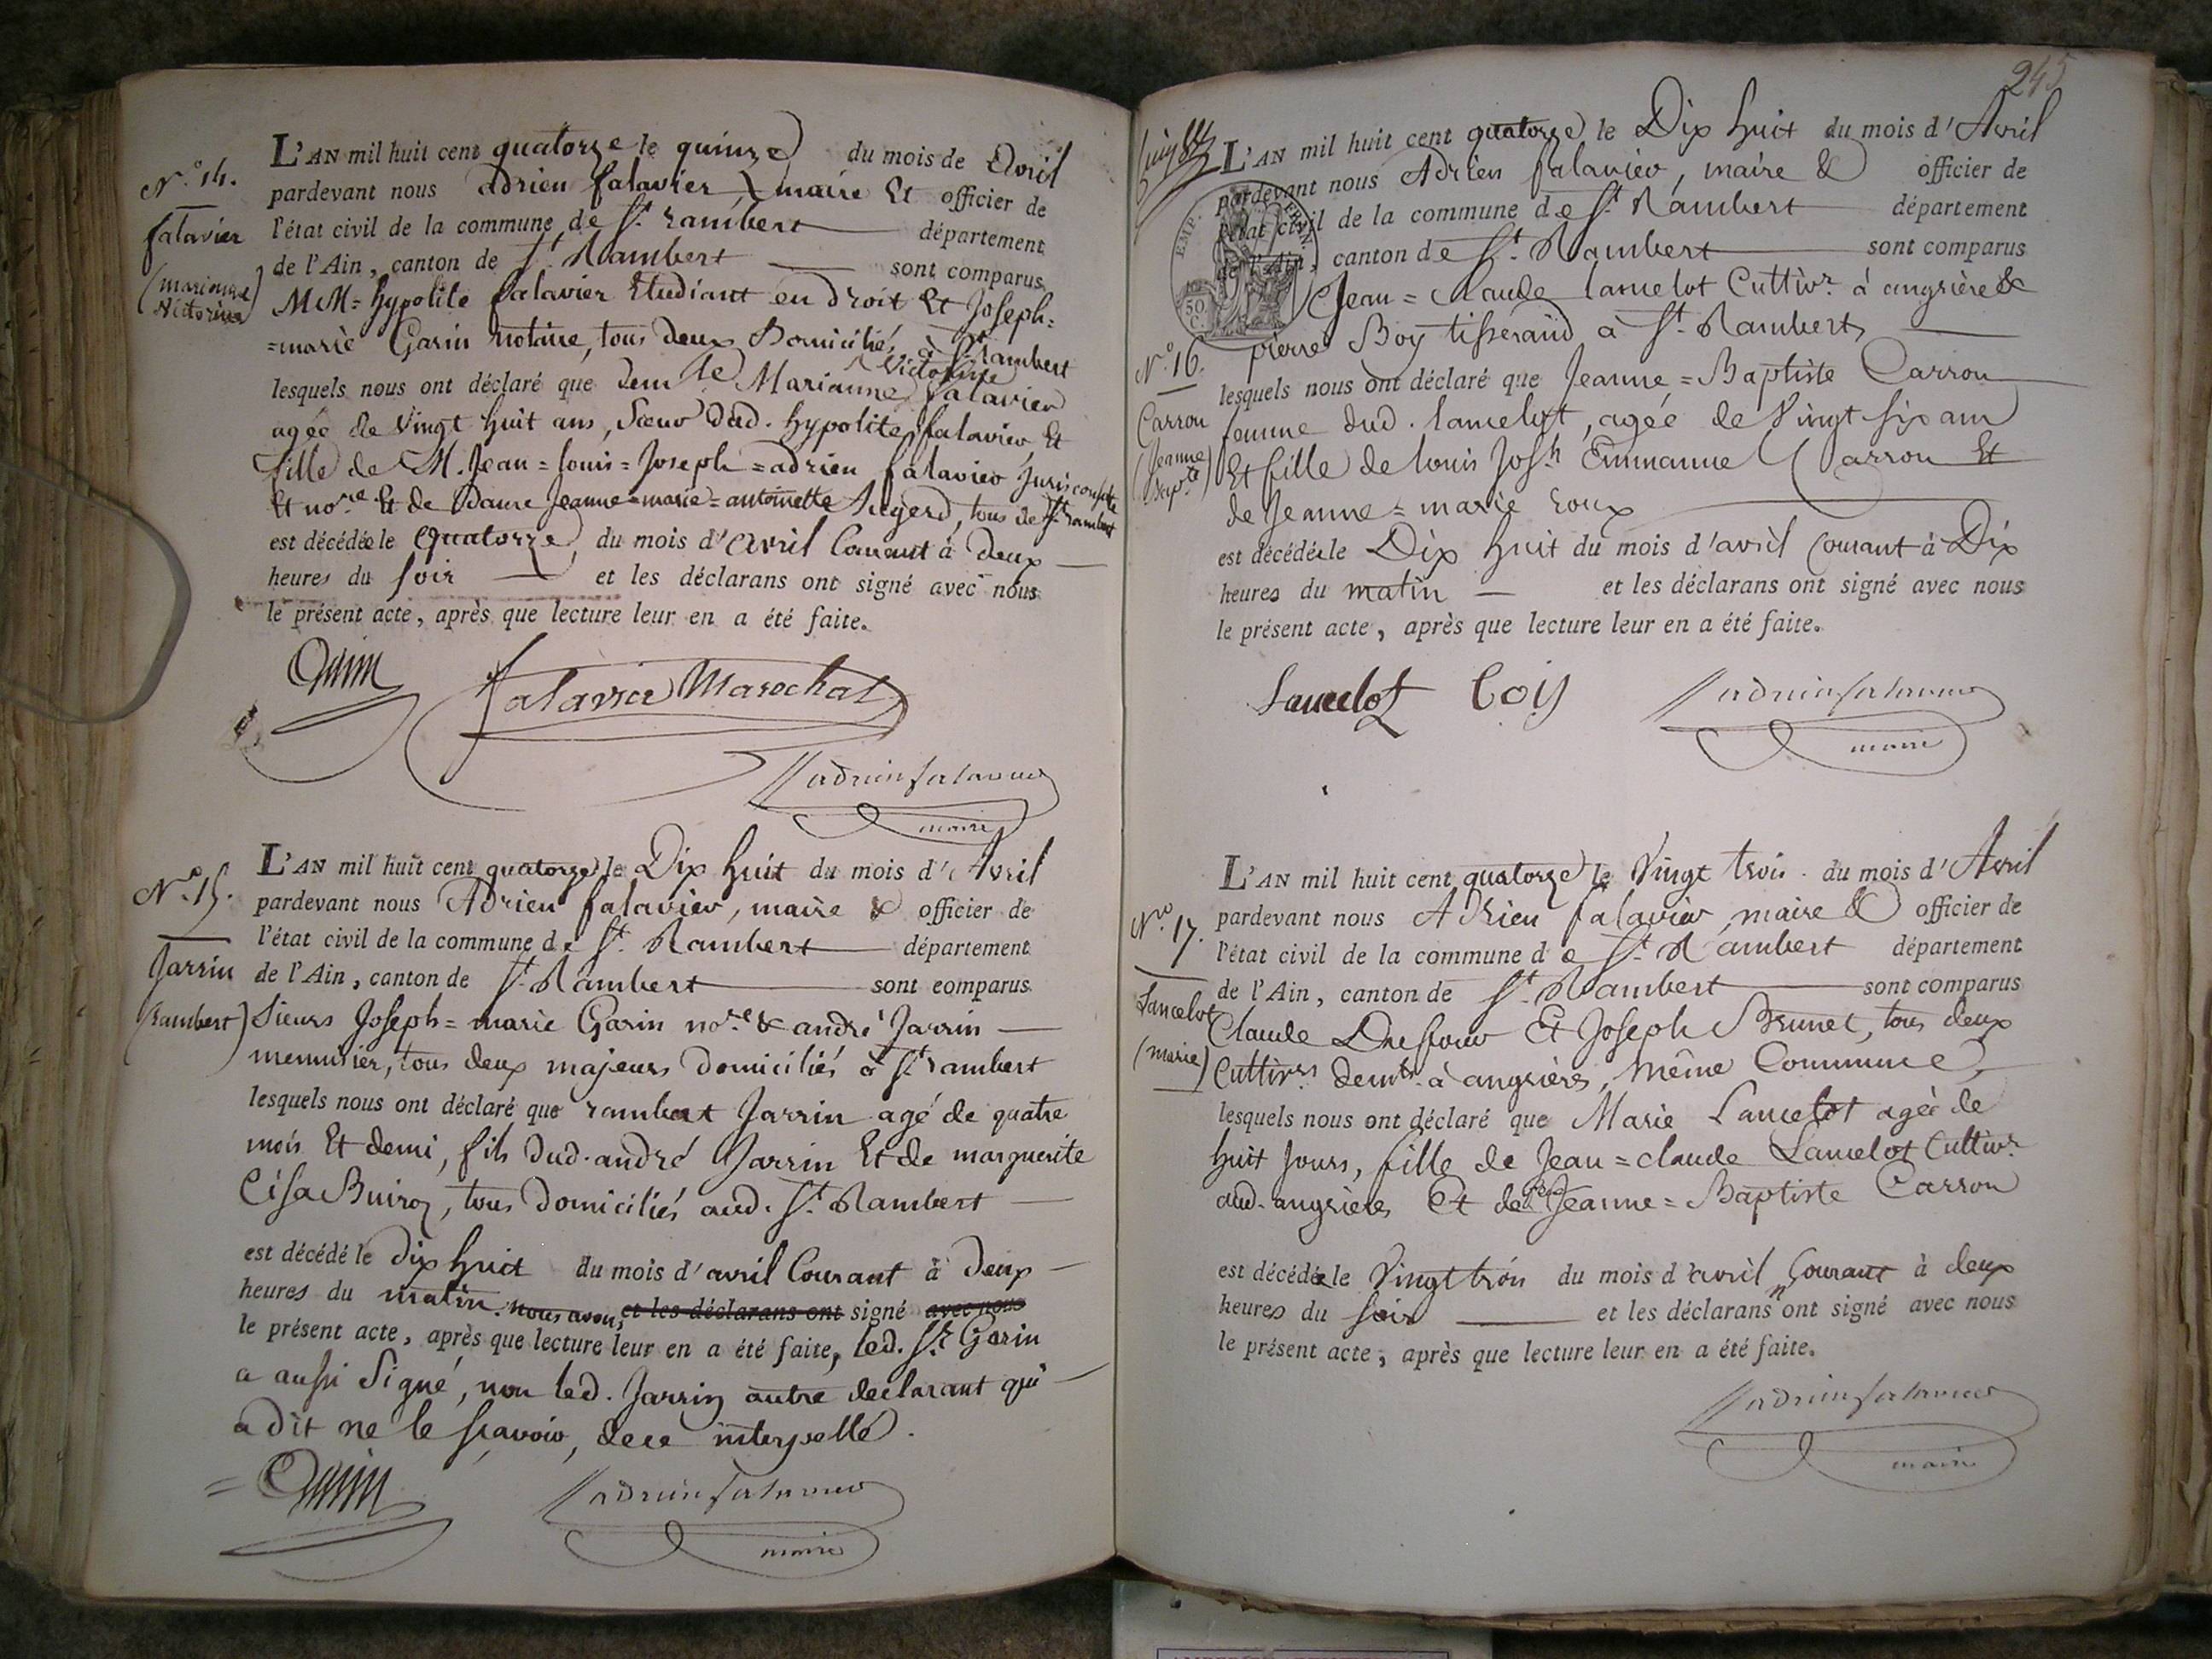 N.º 14.
falavier
(marianne
Victorine)
L'AN mil huit cent quatorze le quinze du mois de Avril
pardevant nous adrien falavier, maire Et officier de
l'état civil de la commune de St. rambert département
de l'Ain, canton de St. Rambert sont comparus
MM= hypolite falavier Etudiant en droit Et Joseph=
=marie Garin notaire, tous deux Domiciliés à St. rambert
lesquels nous ont déclaré que demlle Marianne Victorine falavier
agée de Vingt huit ans, Sœur dud. hypolite falavier, Et
fille de M. Jean=Louis=Joseph=adrien falavier Jurisconsulte
Et nore. Et de Dame Jeanne=marie=antoinette Augerd, tous de St. rambert
est décédée le quatorze du mois d'avril Courant à deux
heures du soir et les déclarans ont signé avec nous
le présent acte, après que lecture leur en a été faite.
Garin falavier Marechal
adrien falavier
maire
N.º 15.
Jarrin
(rambert)
L'AN mil huit cent quatorze le Dix huit du mois d'Avril
pardevant nous Adrien falavier, maire & officier de
l'état civil de la commune de St. Rambert département
de l'Ain, canton de St. Rambert sont comparus
Sieurs Joseph=marie Garin nore. & andré Jarrin
menuisier, tous deux majeurs domiciliés à St. rambert
lesquels nous ont déclaré que rambert Jarrin agé de quatre
mois Et demi, fils dud. andré Jarrin Et de marguerite
Cisa Buiroz, tous Domiciliés aud. St. Rambert
est décédé le dix huit du mois d'avril Courant à Deux
heures du matin. nous avons et les déclarans ont signé avec nous
le présent acte, après que lecture leur en a été faite, led. Sr. Garin
a aussi Signé, non led. Jarrin autre declarant qui
a dit ne le sçavoir, de ce interpellé.
Garin adrien falavier
maire
245
EMP. FRAN.
50 C.
N.º 16.
Carron
(Jeanne
Bapte.)
L'AN mil huit cent quatorze le Dix huit du mois d'Avril
pardevant nous Adrien falavier, maire & officier de
l'état civil de la commune de St. Rambert département
de l'Ain, canton de St. Rambert sont comparus
Jean=Claude lancelot Cultivr. à angrière &
pierre Boy tisserand à St. Rambert
lesquels nous ont déclaré que Jeanne=Baptiste Carron
femme dud. lancelot, agée de Vingt six ans
Et fille de louis Josh. Emmanuel Carron Et
de Jeanne=marie roux
est décédée le Dix huit du mois d'avril Courant à Dix
heures du matin et les déclarans ont signé avec nous
le présent acte, après que lecture leur en a été faite.
Lancelot Boy adrien falavier
maire
N.ro 17.
Lancelot
(marie)
L'AN mil huit cent quatorze le Vingt trois du mois d'Avril
pardevant nous Adrien falavier, maire & officier de
l'état civil de la commune de St. Rambert département
de l'Ain, canton de St. Rambert sont comparus
Claude Dufour Et Joseph Brunet, tous deux
Cultivrs. demts. à angrières, même Commune,
lesquels nous ont déclaré que Marie Lancelot agée de
huit Jours, fille de Jean=claude Lancelot Cultivr.
aud. angrières Et de Jeanne=Baptiste Carron
est décédée le Vingt trois du mois d'avril Courant à deux
heures du soir et les déclarans n'ont signé avec nous
le présent acte, après que lecture leur en a été faite.
adrien falavier
maire